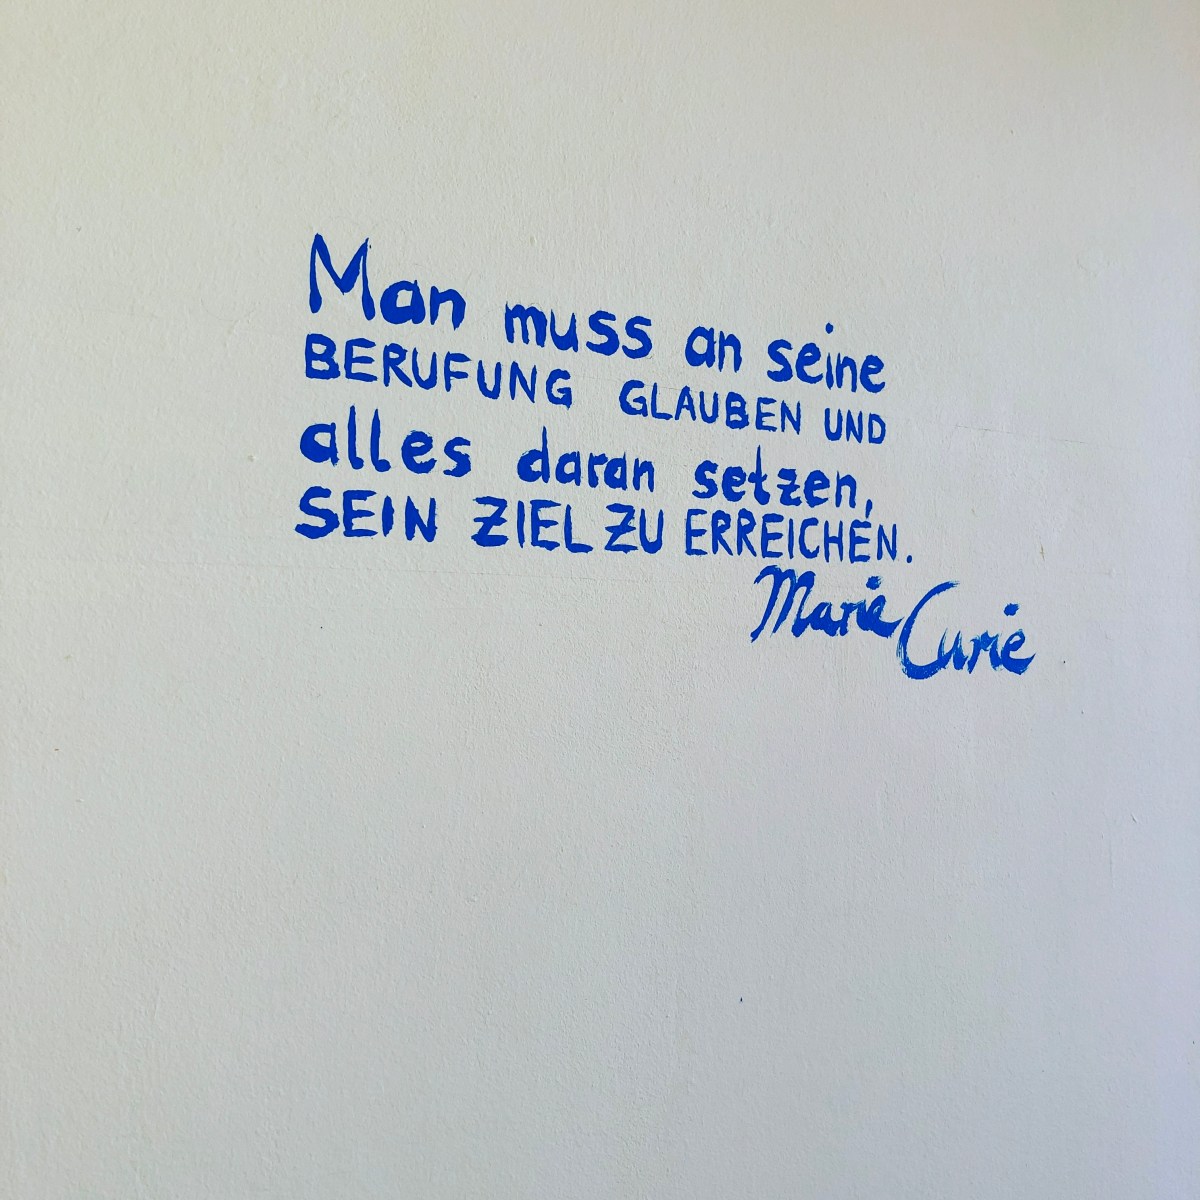 Man muss an seine
BERUFUNG GLAUBEN UND
alles daran setzen,
SEIN ZIEL ZU ERREICHEN.
Marie Curie